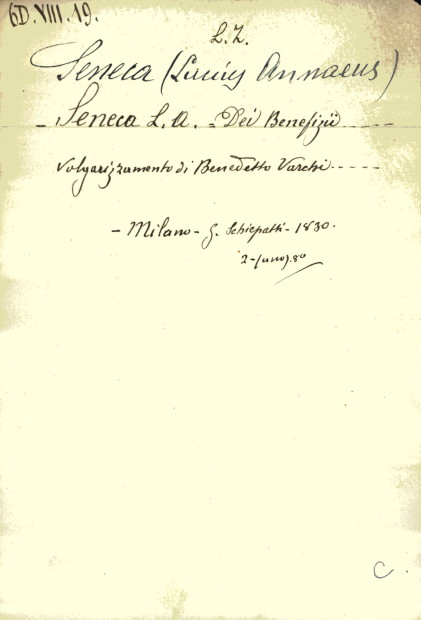 6D.VIII.19.
L.Z.
Seneca (Lucius Annaeus)
- Seneca L. A. = Dei Benefizii
Volgarizzamento di Benedetto Varchi
- Milano - G. Schiepatti - 1830.
2-(uno) 8º
C.